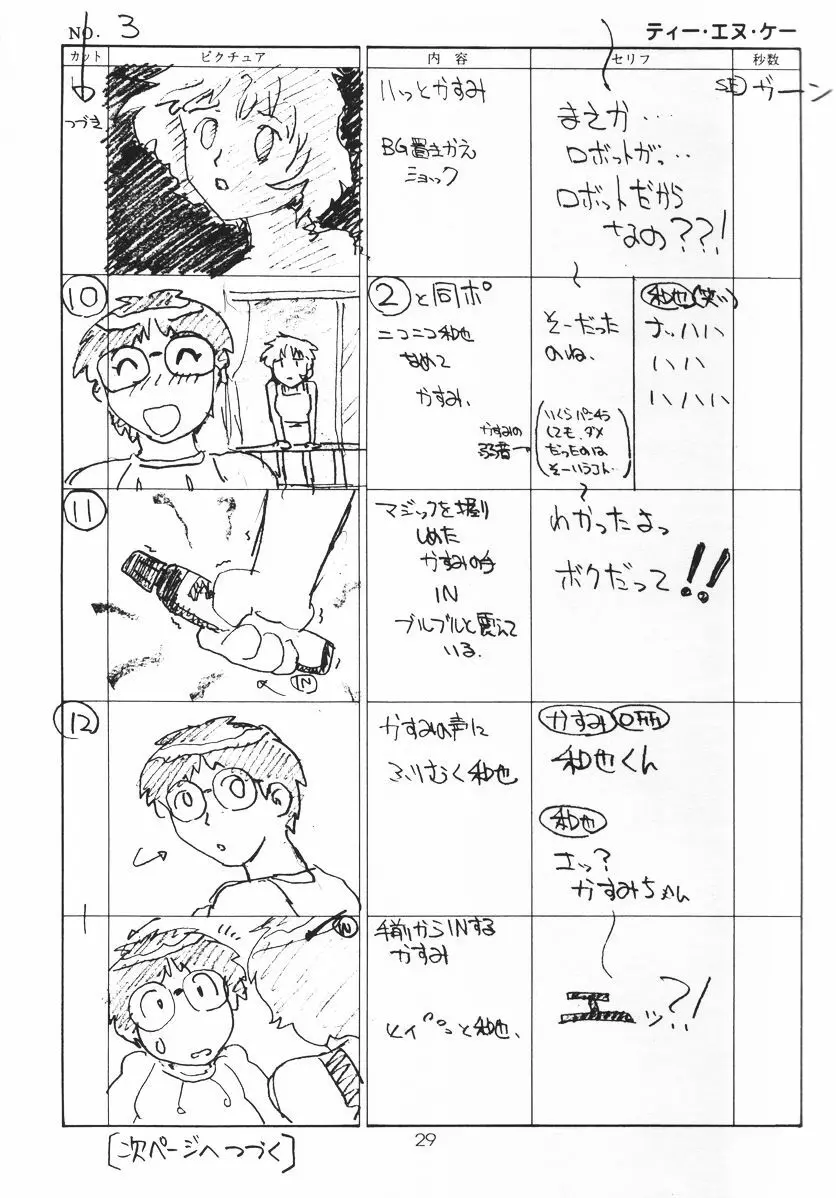 NO. 3
ティー・エヌ・ケー
カット
ピクチュア
内容
セリフ
秒数
つづき
ハッとかすみ
BG置きかえ
ショック
まえが…
ロボットが…
ロボットだから
なの??!
SE ガーン
10
②と同ポ
ニコニコ和也
なめて
かすみ、
かすみの
そーだった
のね、
いくらパンチら
しても、ダメ
だったのは
そーいうコト…
和也(笑い)
ハハ
11
マジックを握り
しめた
かすみの手
IN
ブルブルと震えて
いる.
わかったよっ
ボクだって!!
IN
12
かすみの声に
ふりむく和也
かすみ
和也くん
和也
えッ?
かすみちゃん
IN
手前からINする
かすみ
と和也、
エッ?!
[次ページへつづく]
29